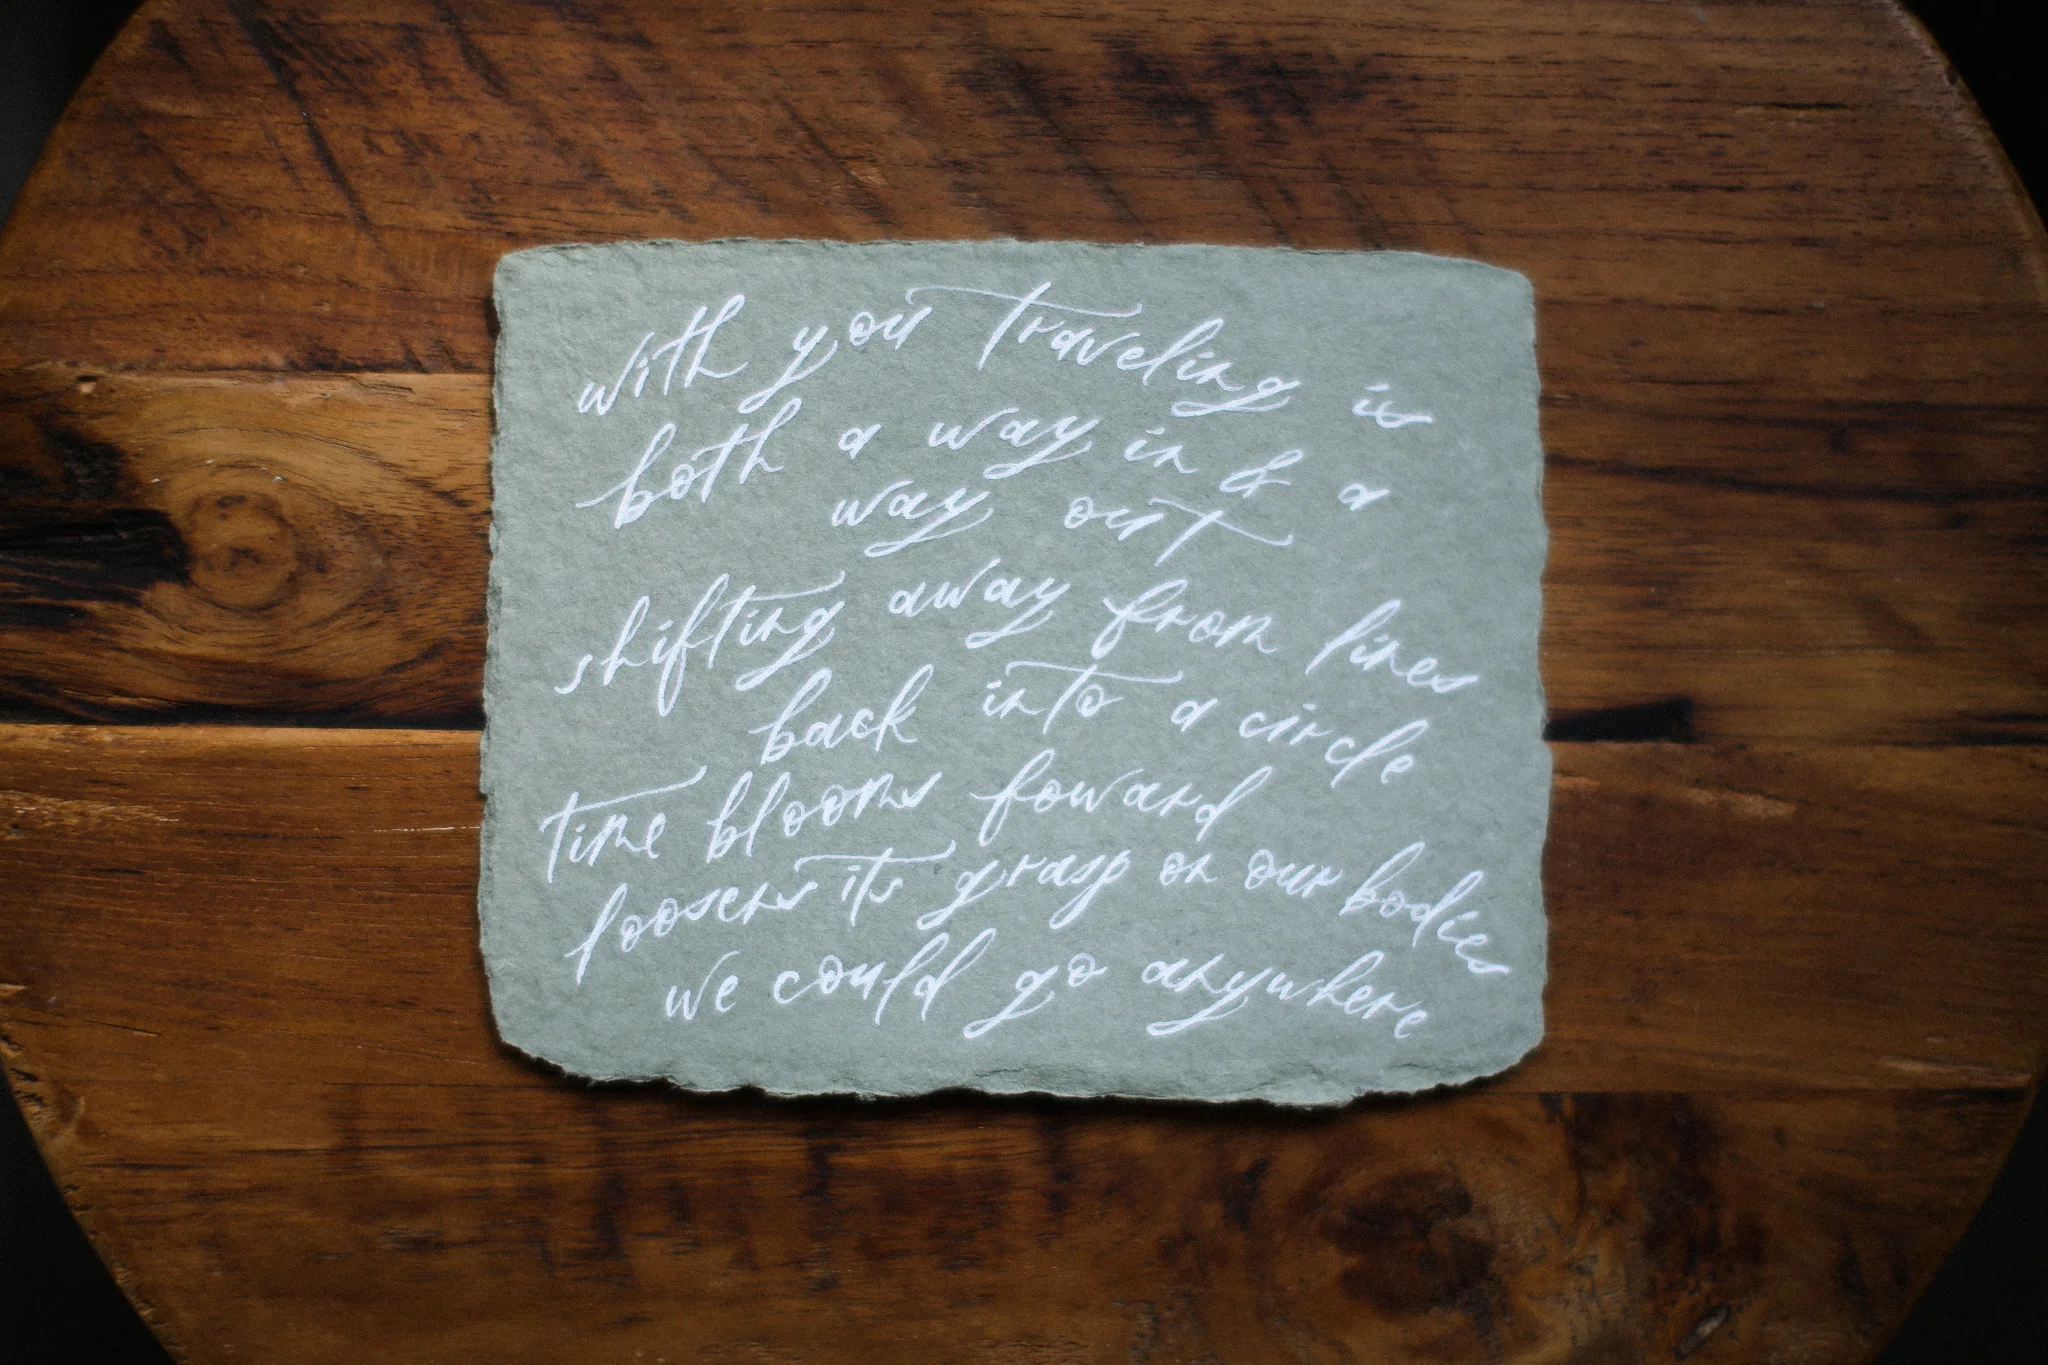 with you traveling is
both a way in & a
way out
shifting away from lines
back into a circle
time blooms foward
loosens its grasp on our bodies
we could go anywhere